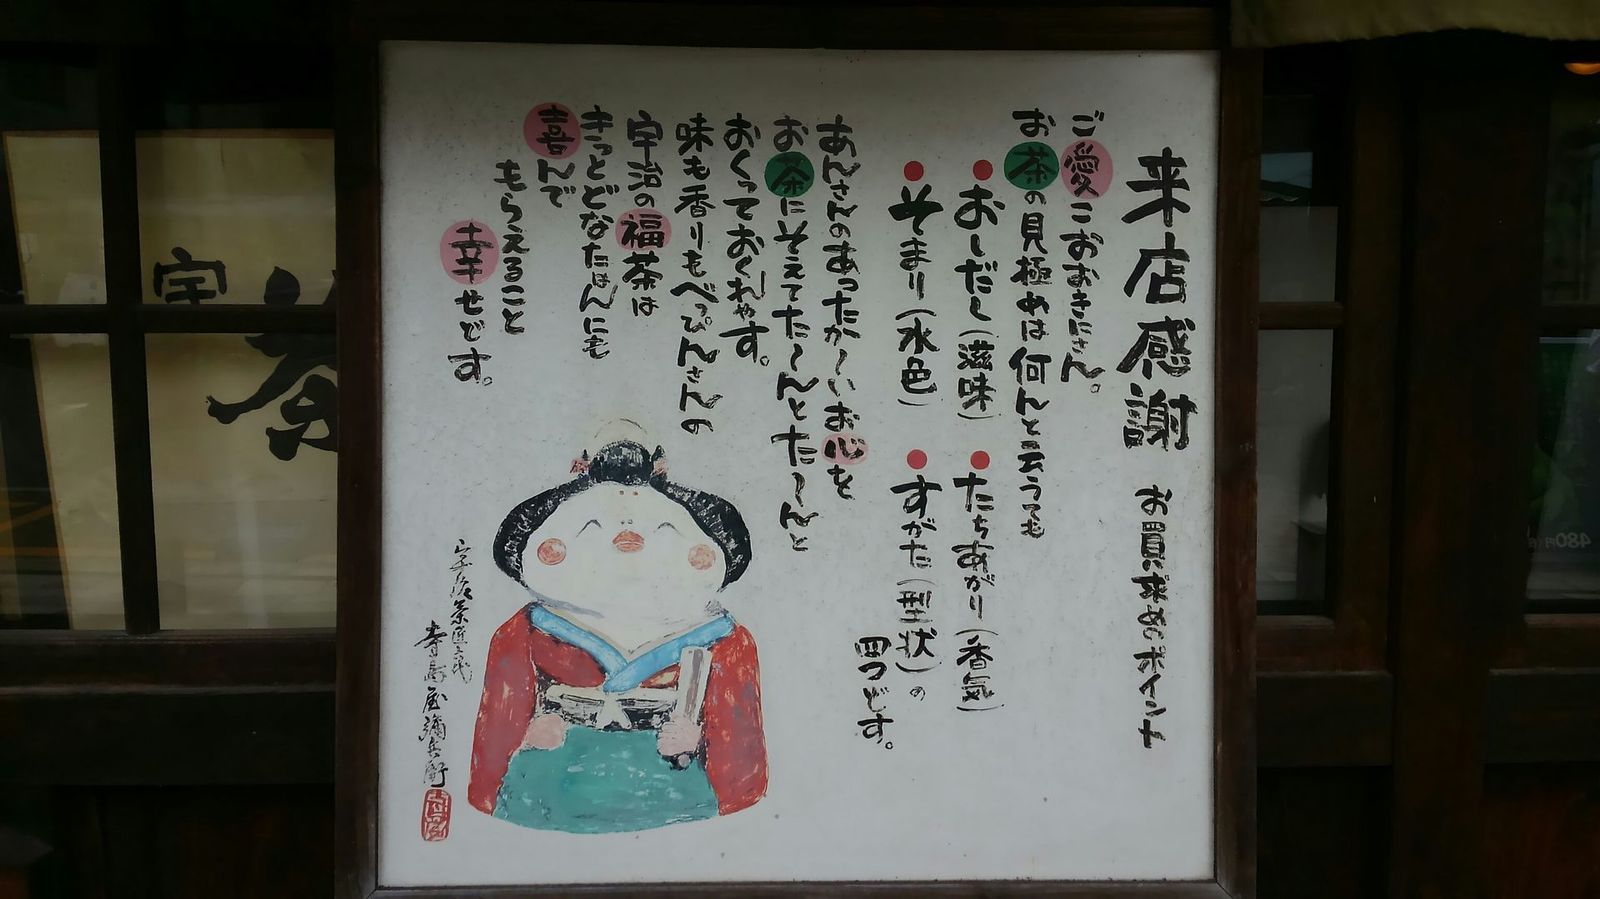 来店感謝 お買い求めのポイント
ご愛こおおきにさん。
お茶の見極めは何んと云うても
おしだし(滋味)
たちあがり(香気)
そまり(水色)
すがた(型状)の
四つどす。
あんさんのあったか〜いお心を
お茶にそえてた〜んとた〜んと
おくっておくれやす。
味も香りもべっぴんさんの
宇治の福茶は
きっとどなたはんにも
喜んで
もらえること
幸せどす。
寺島屋彌兵衛
宇
茶